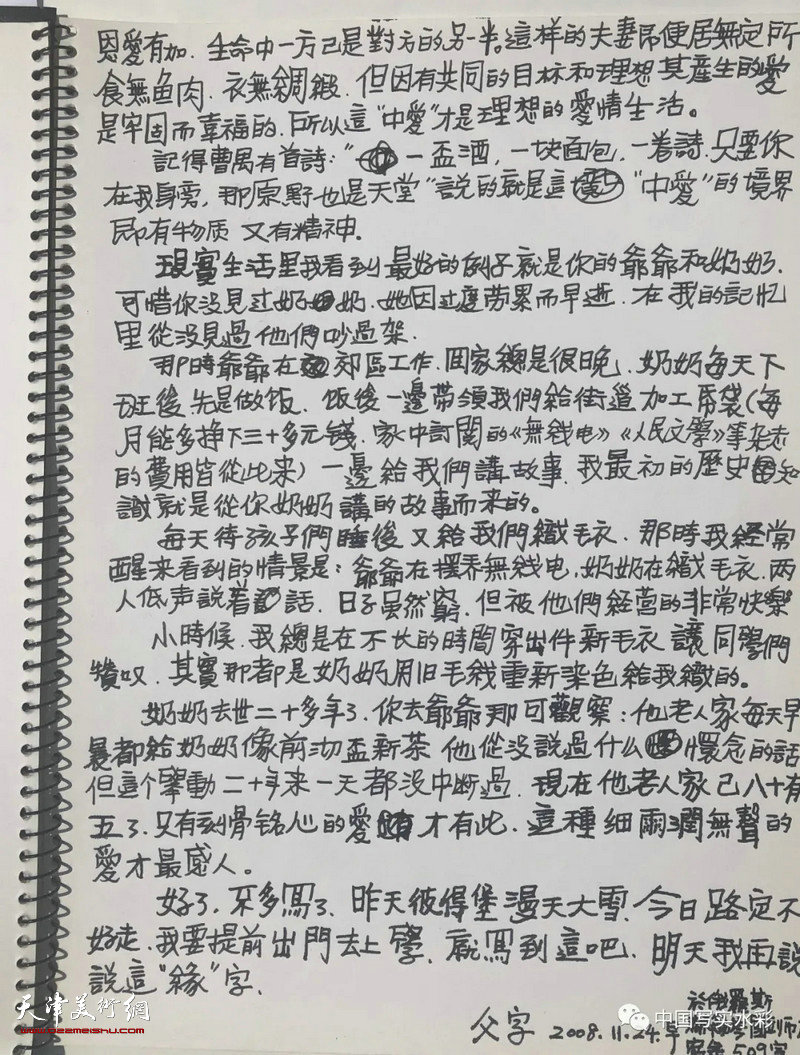 恩愛有加. 生命中一方己是對方的另一半。這样的夫妻即便居無定所
食無鱼肉. 衣無綢緞. 但因有共同的目标和理想其産生的愛
是牢固而幸福的. 所以這“中愛”才是理想的愛情生活。
記得曹禺有首詩:“一盃酒, 一块面包, 一卷詩. 只要你
在我身旁, 那原野也是天堂”説的就是這“中愛”的境界
即有物质 又有精神.
現實生活里我看到最好的例子就是你的爺爺和奶奶.
可惜你没見过奶奶. 她因过度劳累而早逝. 在我的記忆
里從没見過他們吵过架.
那時爺爺在郊區工作. 回家總是很晚. 奶奶每天下
班後先是做饭. 饭後一邊带領我們給街道加工帋袋(每
月能多挣下三十多元钱. 家中訂閲的《無线电》《人民文學》等杂志
的費用皆從此来) 一邊給我們講故事. 我最初的歷史知
識就是從你奶奶講的故事而来的。
每天待孩子們睡後又給我們織毛衣. 那時我經常
醒来看到的情景是: 爺爺在摆弄無线电, 奶奶在織毛衣. 两
人低声説着話. 日子虽然窮. 但被他們經营的非常快樂
小時候. 我總是在不长的時間穿出件新毛衣 讓同學們
赞叹. 其實那都是奶奶用旧毛线重新染色給我織的。
奶奶去世二十多年了. 你去爺爺那可觀察: 他老人家每天早
晨都給奶奶像前沏盃新茶 他從没説過什么懷念的話
但這个擧動二十年来一天都没中断過. 現在他老人家已八十有
五了. 只有刻骨铭心的愛才有此. 這種细雨潤無聲的
愛才最感人。
好了. 不多寫了. 昨天彼得堡漫天大雪. 今日路定不
好走. 我要提前出門去上學. 就寫到這吧. 明天我再説
説這“緣”字.
於俄羅斯
父字 2008.11.24.早
509室
天津美術網
www.022meishu.com
中国写实水彩